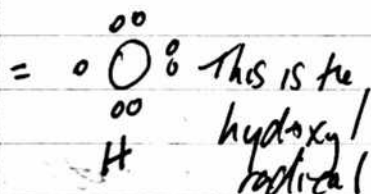 = O This is the
H hydroxyl
radical